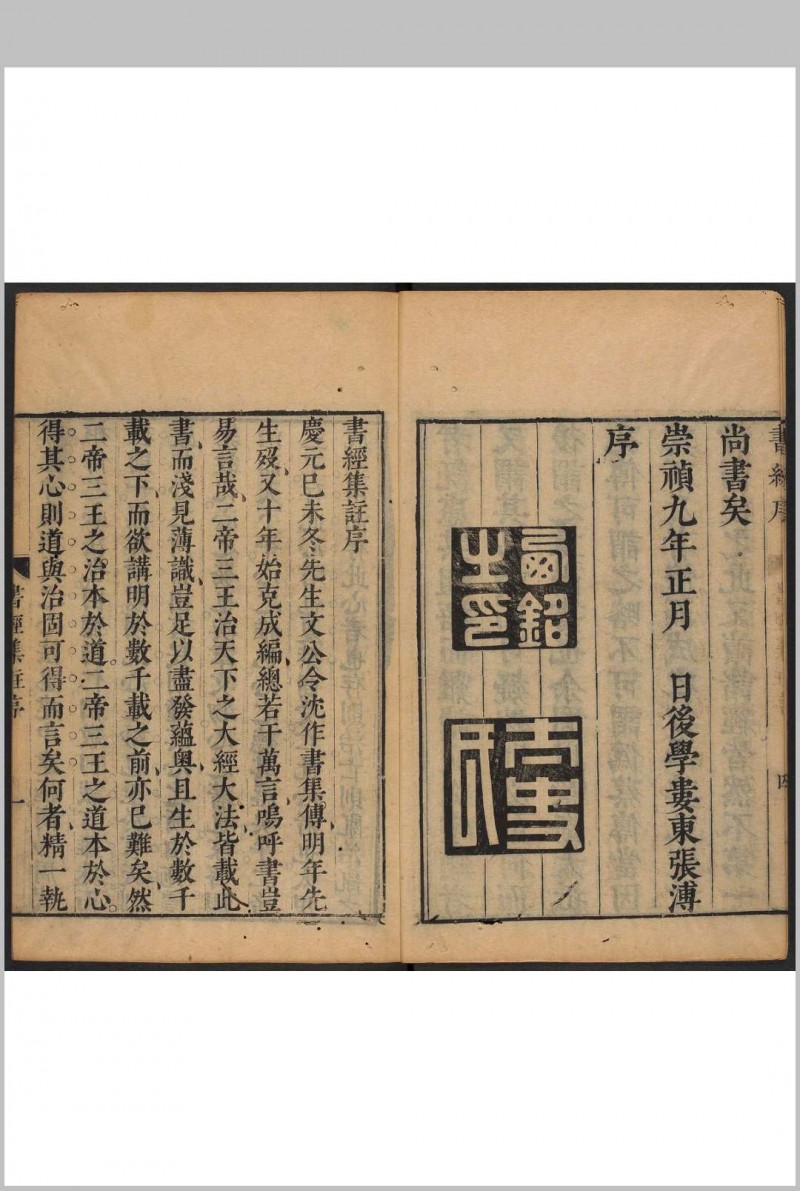 書經序
四
尚書矣
崇禎九年正月　日後學婁東張溥
序
西銘之印
太史氏
書經集註序
慶元己未冬先生文公令沈作書集傳明年先
生歿又十年始克成編總若干萬言嗚呼書豈
易言哉二帝三王治天下之大經大法皆載此
書而淺見薄識豈足以盡發蘊奧且生於數千
載之下而欲講明於數千載之前亦已難矣然
二帝三王之治本於道二帝三王之道本於心
得其心則道與治固可得而言矣何者精一執
書經集註序
一